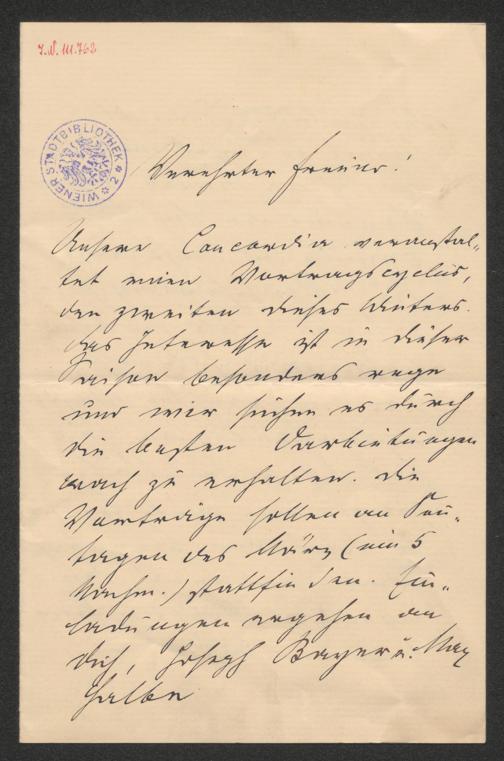 J.N. 111.768
WIENER STADTBIBLIOTHEK 2
Verehrter Freund!
Unsere Concordia veranstal-
tet einen Vortragscyclus,
den zweiten dieses Winters.
Das Interesse ist in dieser
Saison besonders rege
und wir suchen es durch
die besten Darbietungen
wach zu erhalten. Die
Vorträge sollen an Sonn-
tagen des März (um 5
Nachm.) stattfinden. Ein-
ladungen ergehen an
Dich, Joseph Bayer u. Max
Halbe